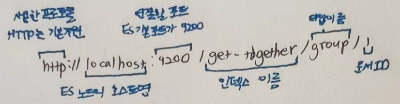 사용할 프로토콜
HTTP는 기본지원
연결할 포트
ES 기본포트가 9200
타입이름
http://localhost:9200/get-together/group/1
ES 노드의 호스트명
인덱스 이름
문서ID